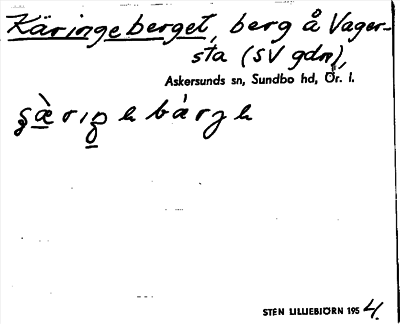 Käringeberget, berg å Vager-
sta (SV gdn),
Askersunds sn, Sundbo hd, Ör. l.
STEN LILLIEBJÖRN 1954.